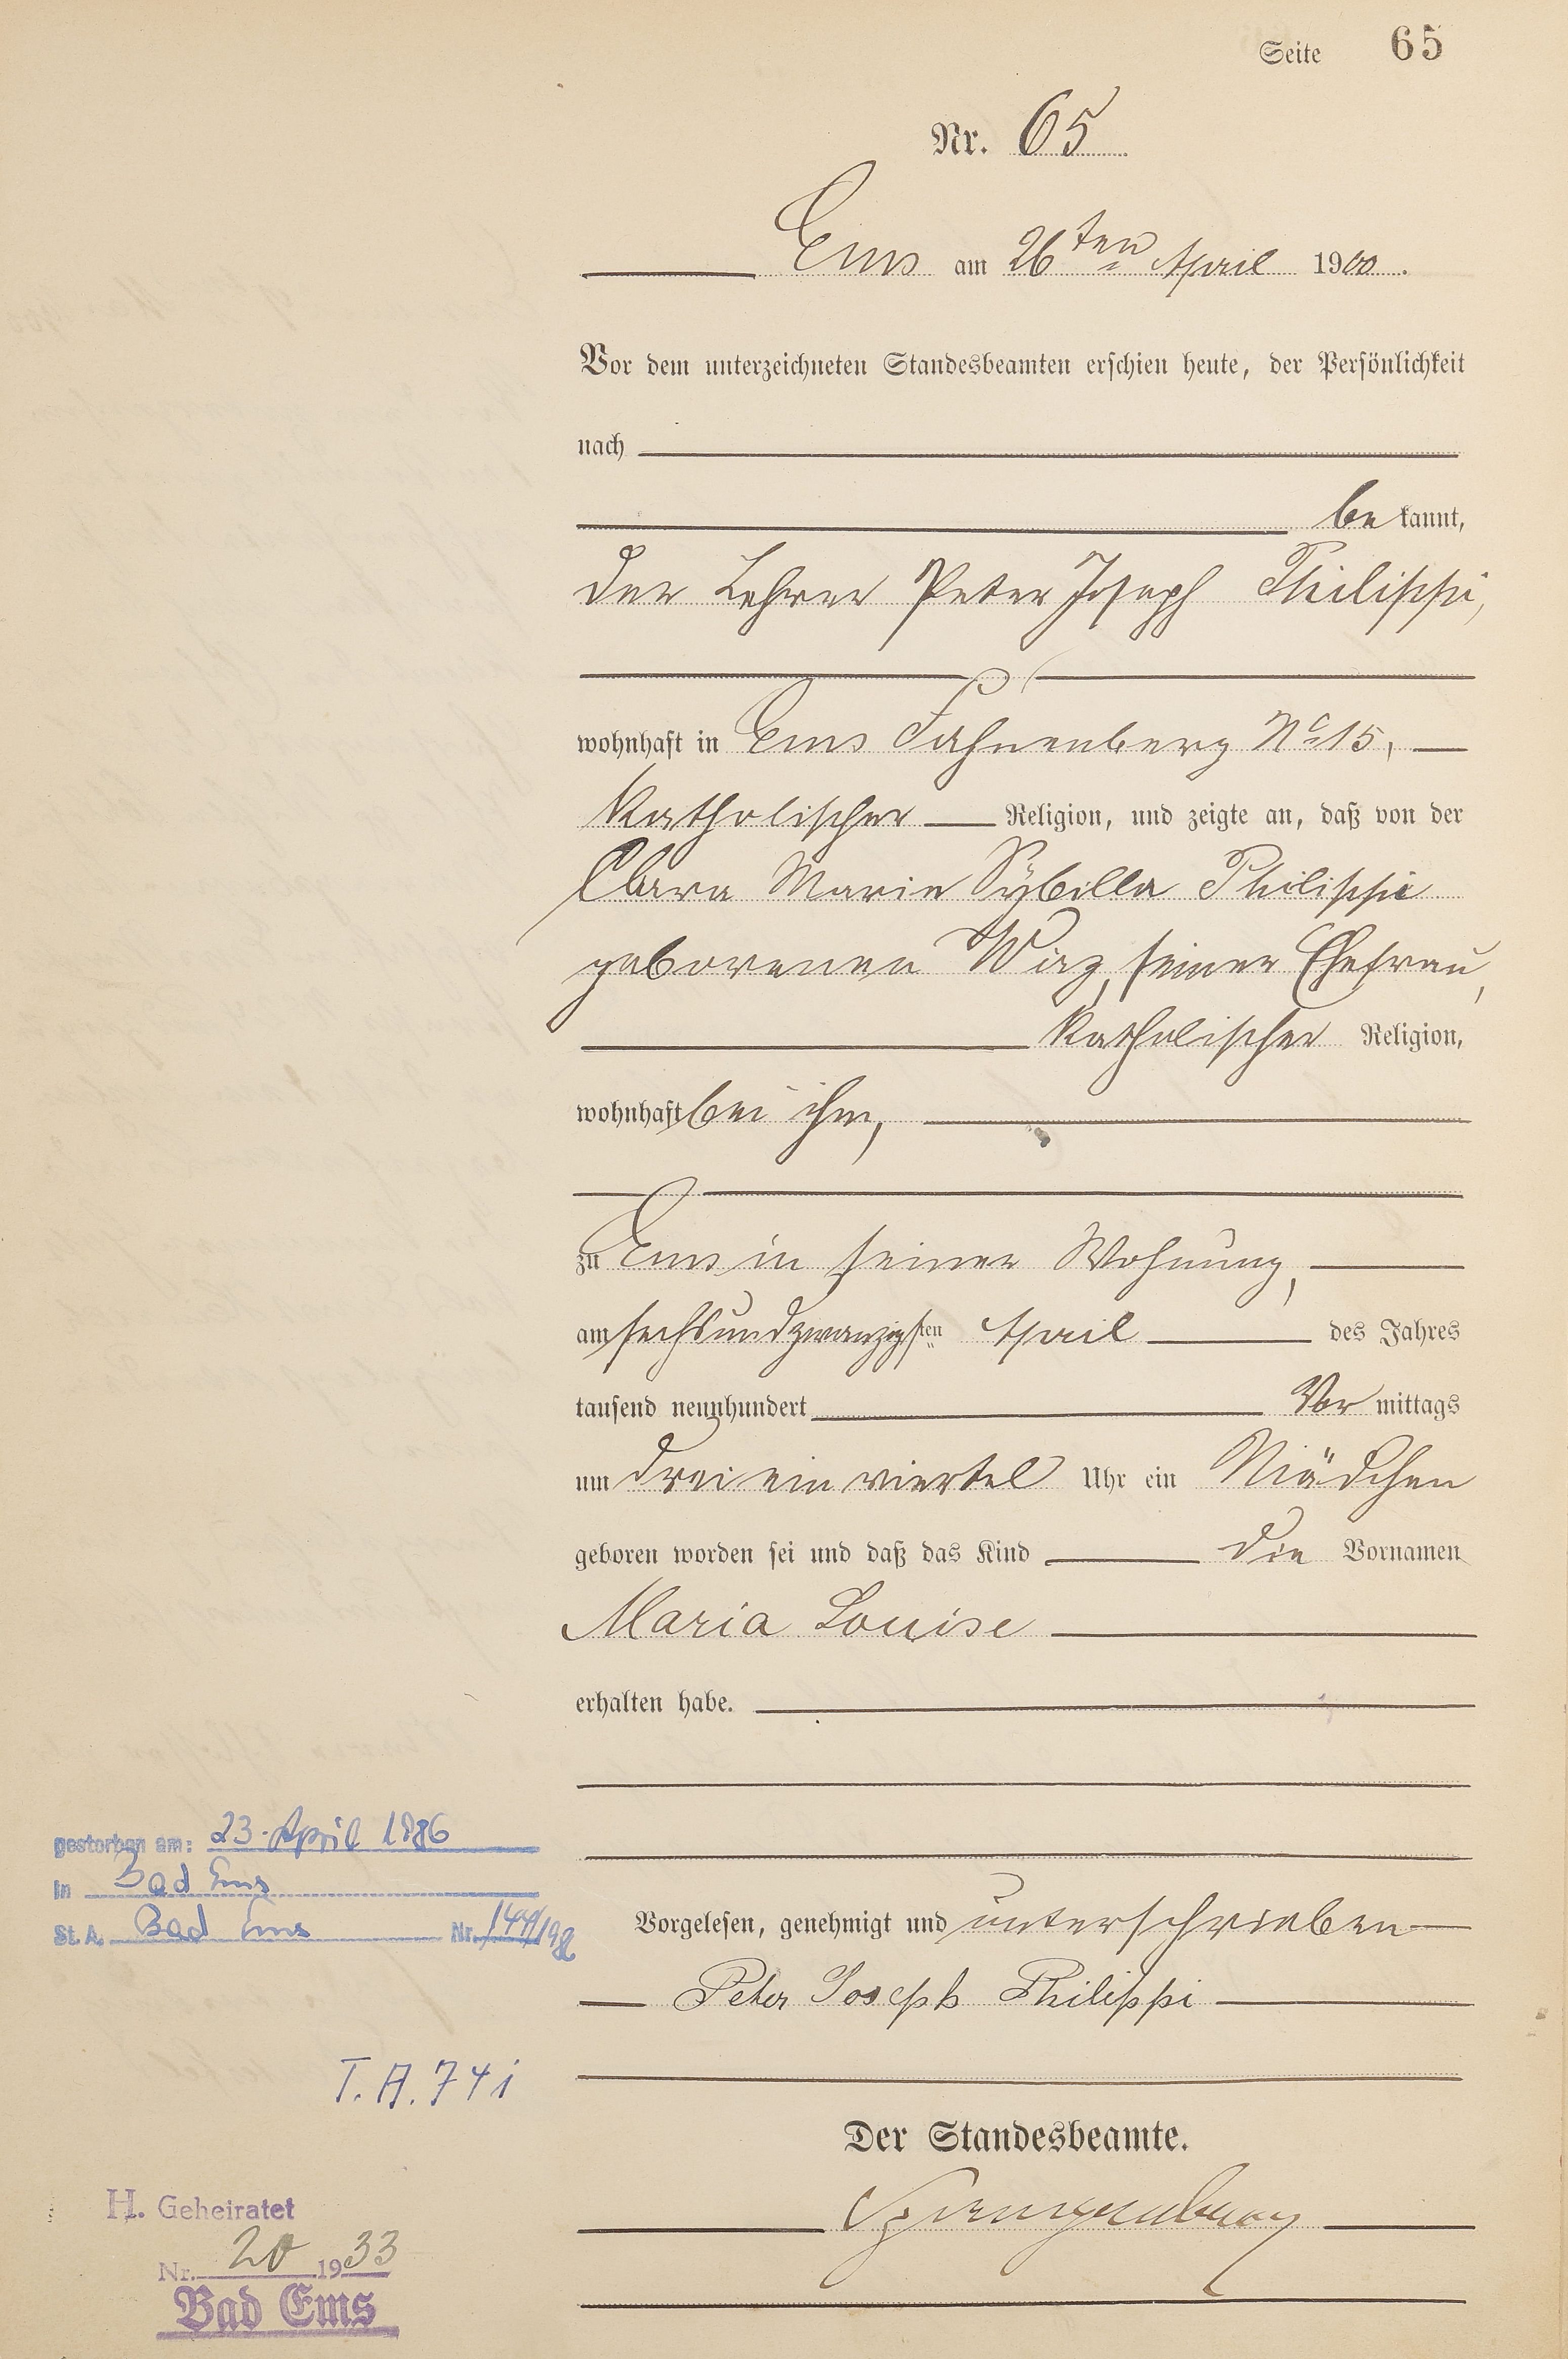 Seite 65
Nr. 65
Ems am 26ten April 1900.
Vor dem unterzeichneten Standesbeamten erschien heute, der Persönlichkeit
nach
be kannt,
der Lehrer Peter Joseph Philippi,
wohnhaft in Ems Fahnenberg No 15,
katholischer Religion, und zeigte an, daß von der
Clara Marie Sybilla Philippi
geborenen seiner Ehefrau,
katholischer Religion,
wohnhaft bei ihm,
zu Ems in seiner Wohnung,
am sechsundzwanzigsten April des Jahres
tausend neunhundert Vor mittags
um drei ein viertel Uhr ein Mädchen
geboren worden sei und daß das Kind die Vornamen
Maria Louise
erhalten habe.
Vorgelesen, genehmigt und unterschrieben
Peter Joseph Philippi
Der Standesbeamte.
gestorben am: 23. April 1986
in Bad Ems
St. A. Bad Ems Nr.
T.A. 741
H. Geheiratet
Nr. 20 1933
Bad Ems